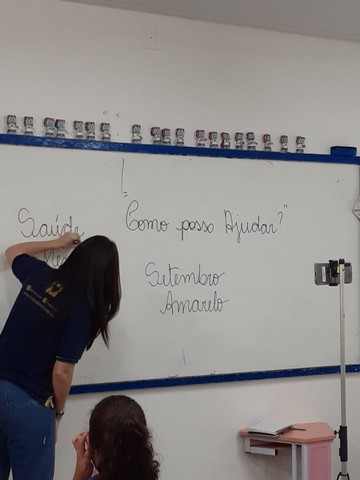 Saúde
"Como posso Ajudar?"
Setembro
Amarelo